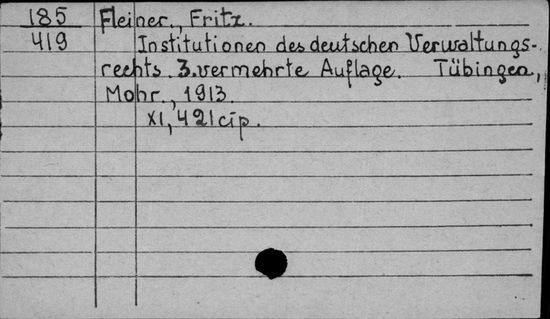 185 Fleiner., Fritz.
419 Institutionen des deutschen Verwaltungs-
rechts. 3. vermehrte Auflage. Tübingen,
Mohr., 1913.
XI, 421 cip.